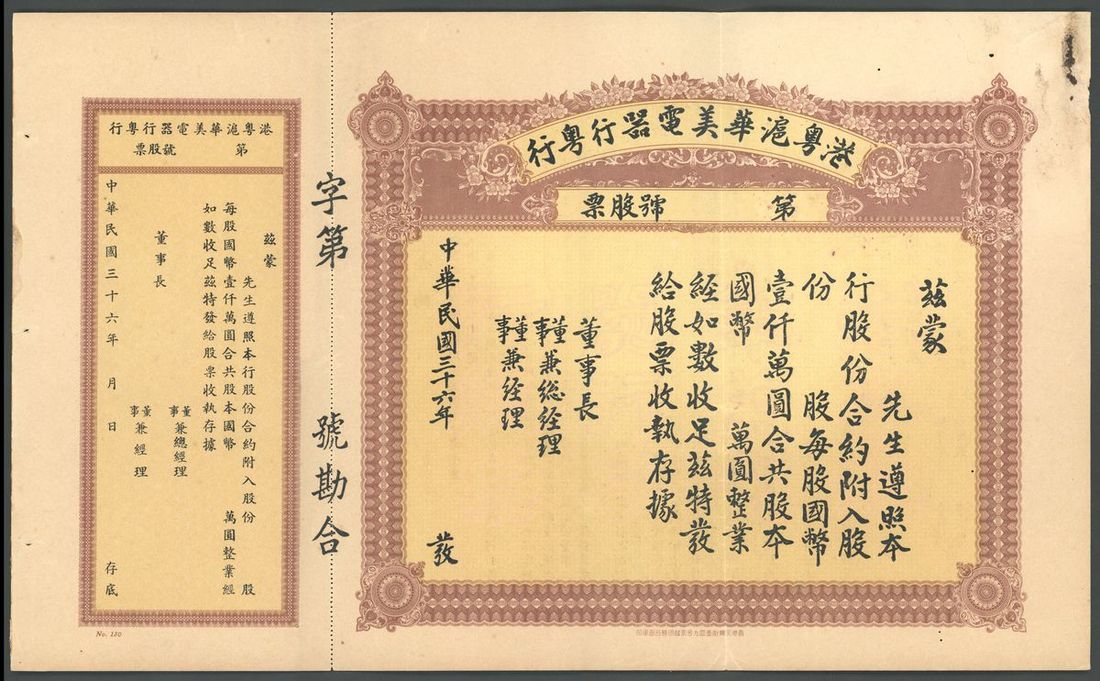 港粵滬華美電器行粵行
第　號股票
茲蒙
先生遵照本
行股份合約附入股
份　股每股國幣
壹仟萬圓合共股本
國幣　萬圓整業
經如數收足茲特發
給股票收執存據
董事長
董事兼總經理
董事兼經理
中華民國三十六年　發
字第　號勘合
港粵滬華美電器行粵行
第　號股票
茲蒙
先生遵照本行股份合約附入股份　股
每股國幣壹仟萬圓合共股本國幣　萬圓整業經
如數收足茲特發給股票收執存據
董事兼總經理
董事長
董事兼經理
中華民國三十六年　月　日　存底
No. 130